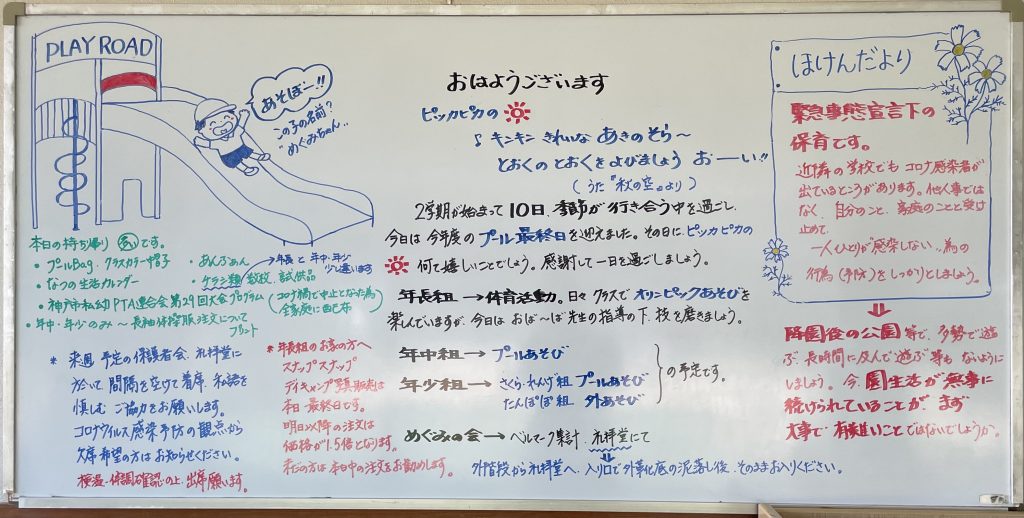 PLAY ROAD
あそぼー!!
この子の名前?
"めぐみちゃん"
おはようございます
ピッカピカの
♪ キンキン きれいな あきのそら〜
とおくの とおくを よびましょう おーい!!
(うた『秋の空』より)
2学期が始まって10日、季節が行き合う中を過ごし、
今日は今年度のプール最終日を迎えました。その日にピッカピカの
何て嬉しいことでしょう。感謝して一日を過ごしましょう。
年長組→体育活動。日々クラスでオリンピックあそびを
楽しんでいますが、今日はおば〜ば先生の指導の下、技を磨きましょう。
年中組→プールあそび
年少組→さくら・れんげ組 プールあそび
たんぽぽ組 外あそび
の予定です。
めぐみの会→ベルマーク集計 礼拝堂にて
外階段から礼拝堂へ、入り口で外靴底の泥落し後、そのままお入りください。
本日の持ち帰り 多いです。
・プールBag・クラスカラー帽子
・なつの生活カレンダー
・あんふぁん
→年長と年中・年少
少し違います
・ケラシ類/数枚、試供品
・神戸市私幼PTA連合会第29回大会プログラム
(コロナ禍で中止となった為
全家庭に配布)
・年中・年少のみ〜長袖体操服注文について
プリント
* 来週 予定の保護者会、礼拝堂に
於いて、間隔を空けて着席、私語を
慎しむ ご協力をお願いします。
コロナウイルス感染予防の観点から
欠席希望の方はお知らせください。
検温・体調確認の上、出席願います。
* 年長組のお家の方へ
スナップスナップ
デイキャンプ写真販売は
本日最終日です。
明日以降の注文は
価格が1.5倍となります。
まだの方は本日中の注文をお勧めします。
ほけんだより
緊急事態宣言下の
保育です。
近隣の学校でもコロナ感染者が
出ているところがあります。他人事では
なく、自分のこと、家庭のことと受け
止めて
一人ひとりが感染しない為の
行為(予防)をしっかりとしましょう。
降園後の公園等で、多勢で遊
ぶ、長時間に及んで遊ぶ等もないように
しましょう。今、園生活が無事に
続けられていることが、まず
大事で有難いことではないでしょうか。